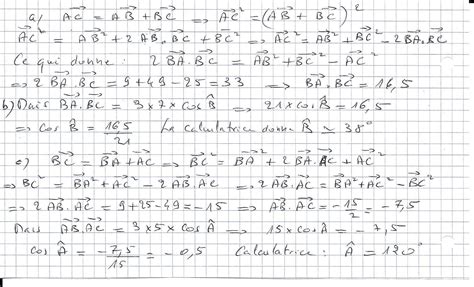 a) AC→ = AB→ + BC→ ⟹ AC→² = (AB→ + BC→)²
AC→² = AB→² + 2 AB→.BC→ + BC→² ⟹ AC→² = AB→² + BC→² - 2BA→.BC→
Ce qui donne : 2 BA→.BC→ = AB→² + BC→² - AC→²
⟹ 2 BA→.BC→ = 9 + 49 - 25 = 33 ⟹ BA→.BC→ = 16,5
b) Mais BA→.BC→ = 3 x 7 x cos B̂ ⟹ 21 x cos B̂ = 16,5
⟹ cos B̂ = 16,5/21 La calculatrice donne B̂ ≃ 38°
c) BC→ = BA→ + AC→ ⟹ BC→² = BA→² + 2 BA→.AC→ + AC→²
⟹ BC→² = BA→² + AC→² - 2 AB→.AC→ ⟹ 2AB→.AC→ = BA→² + AC→² - BC→²
⟹ 2 AB→.AC→ = 9 + 25 - 49 = -15 ⟹ AB→.AC→ = -15/2 = -7,5
Mais AB→.AC→ = 3 x 5 x cos Â ⟹ 15 x cos Â = -7,5
cos Â = -7,5/15 = -0,5 Calculatrice : Â = 120°